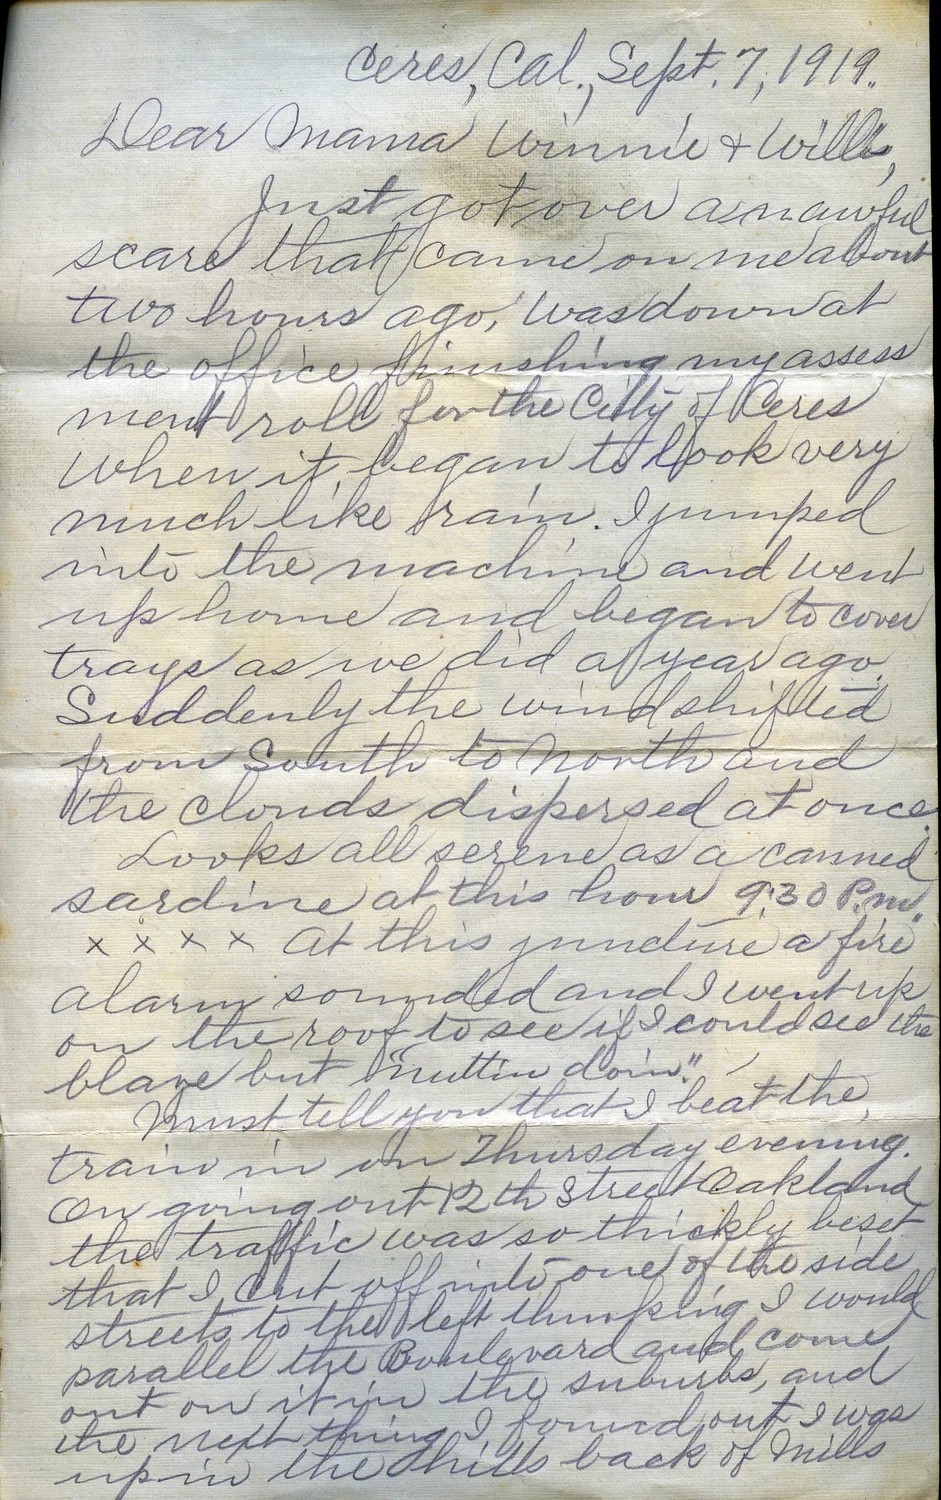 Ceres, Cal., Sept. 7, 1919.
Dear Mama Winnie + Willis,
Just got over an awful
scare that came on me about
two hours ago. Was down at
the office finishing my assess
ment roll for the City of Ceres
When it began to look very
much like rain. I jumped
into the machine and went
up home and began to cover
trays as we did a year ago.
Suddenly the wind shifted
from South to North and
the clouds dispersed at once.
Looks all serene as a canned
sardine at this hour 9:30 P.m.
x x x x At this juncture a fire
alarm sounded and I went up
on the roof to see if I could see the
blaze but "nuttin doin".
Must tell you that I beat the
train in on Thursday evening.
On going out 12th Street Oakland
the traffic was so thickly beset
that I cut off into one of the side
streets to the left thinking I would
parallel the Boulevard and come
out on it in the suburbs, and
the next thing I found out I was
up in the hills back of Mills